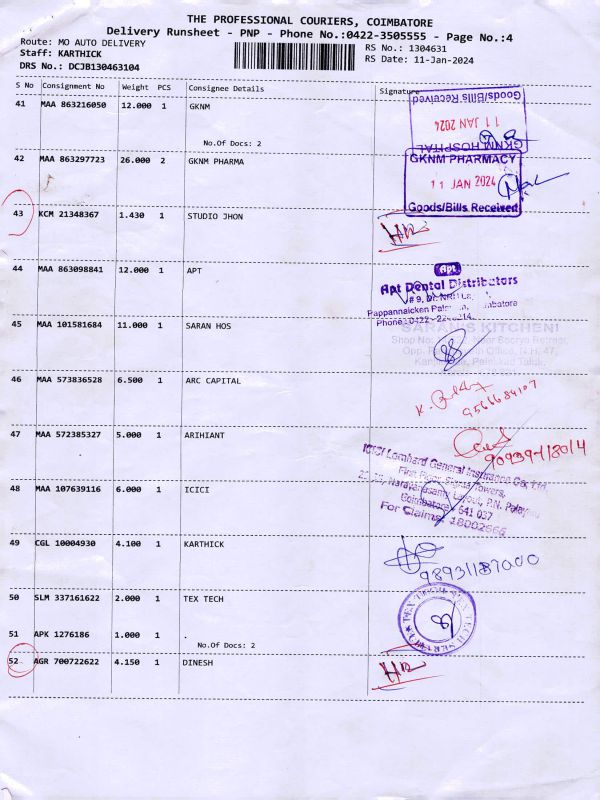 THE PROFESSIONAL COURIERS, COIMBATORE
Delivery Runsheet - PNP - Phone No.:0422-3505555 - Page No.:4
Route: MO AUTO DELIVERY
RS No.: 1304631
Staff: KARTHICK
RS Date: 11-Jan-2024
DRS No.: DCJB130463104
S No Consignment No Weight PCS Consignee Details Signature
41 MAA 863216050 12.000 1 GKNM
Goods/Bills Received
11 JAN 2024
GKNM HOSPITAL
No.Of Docs: 2
42 MAA 863297723 26.000 2 GKNM PHARMA
GKNM PHARMACY
11 JAN 2024
Goods/Bills Received
43 KCM 21348367 1.430 1 STUDIO JHON
44 MAA 863098841 12.000 1 APT
Apt
Apt Dental Distributors
Pappannaicken
Phone: 0422-22
45 MAA 101581684 11.000 1 SARAN HOS
KITCHEN
Shop No:
Opp. Office, N.H. 47,
46 MAA 573836528 6.500 1 ARC CAPITAL
9566684107
47 MAA 572385327 5.000 1 ARIHIANT
ICICI Lombard General Insurance Co. Ltd
First Floor, Towers,
Narayanasamy Layout, P.N. Palayam
Coimbatore - 641 037
For Claims: 18002666
48 MAA 107639116 6.000 1 ICICI
49 CGL 10004930 4.100 1 KARTHICK
50 SLM 337161622 2.000 1 TEX TECH
51 APK 1276186 1.000 1 .
No.Of Docs: 2
52 AGR 700722622 4.150 1 DINESH